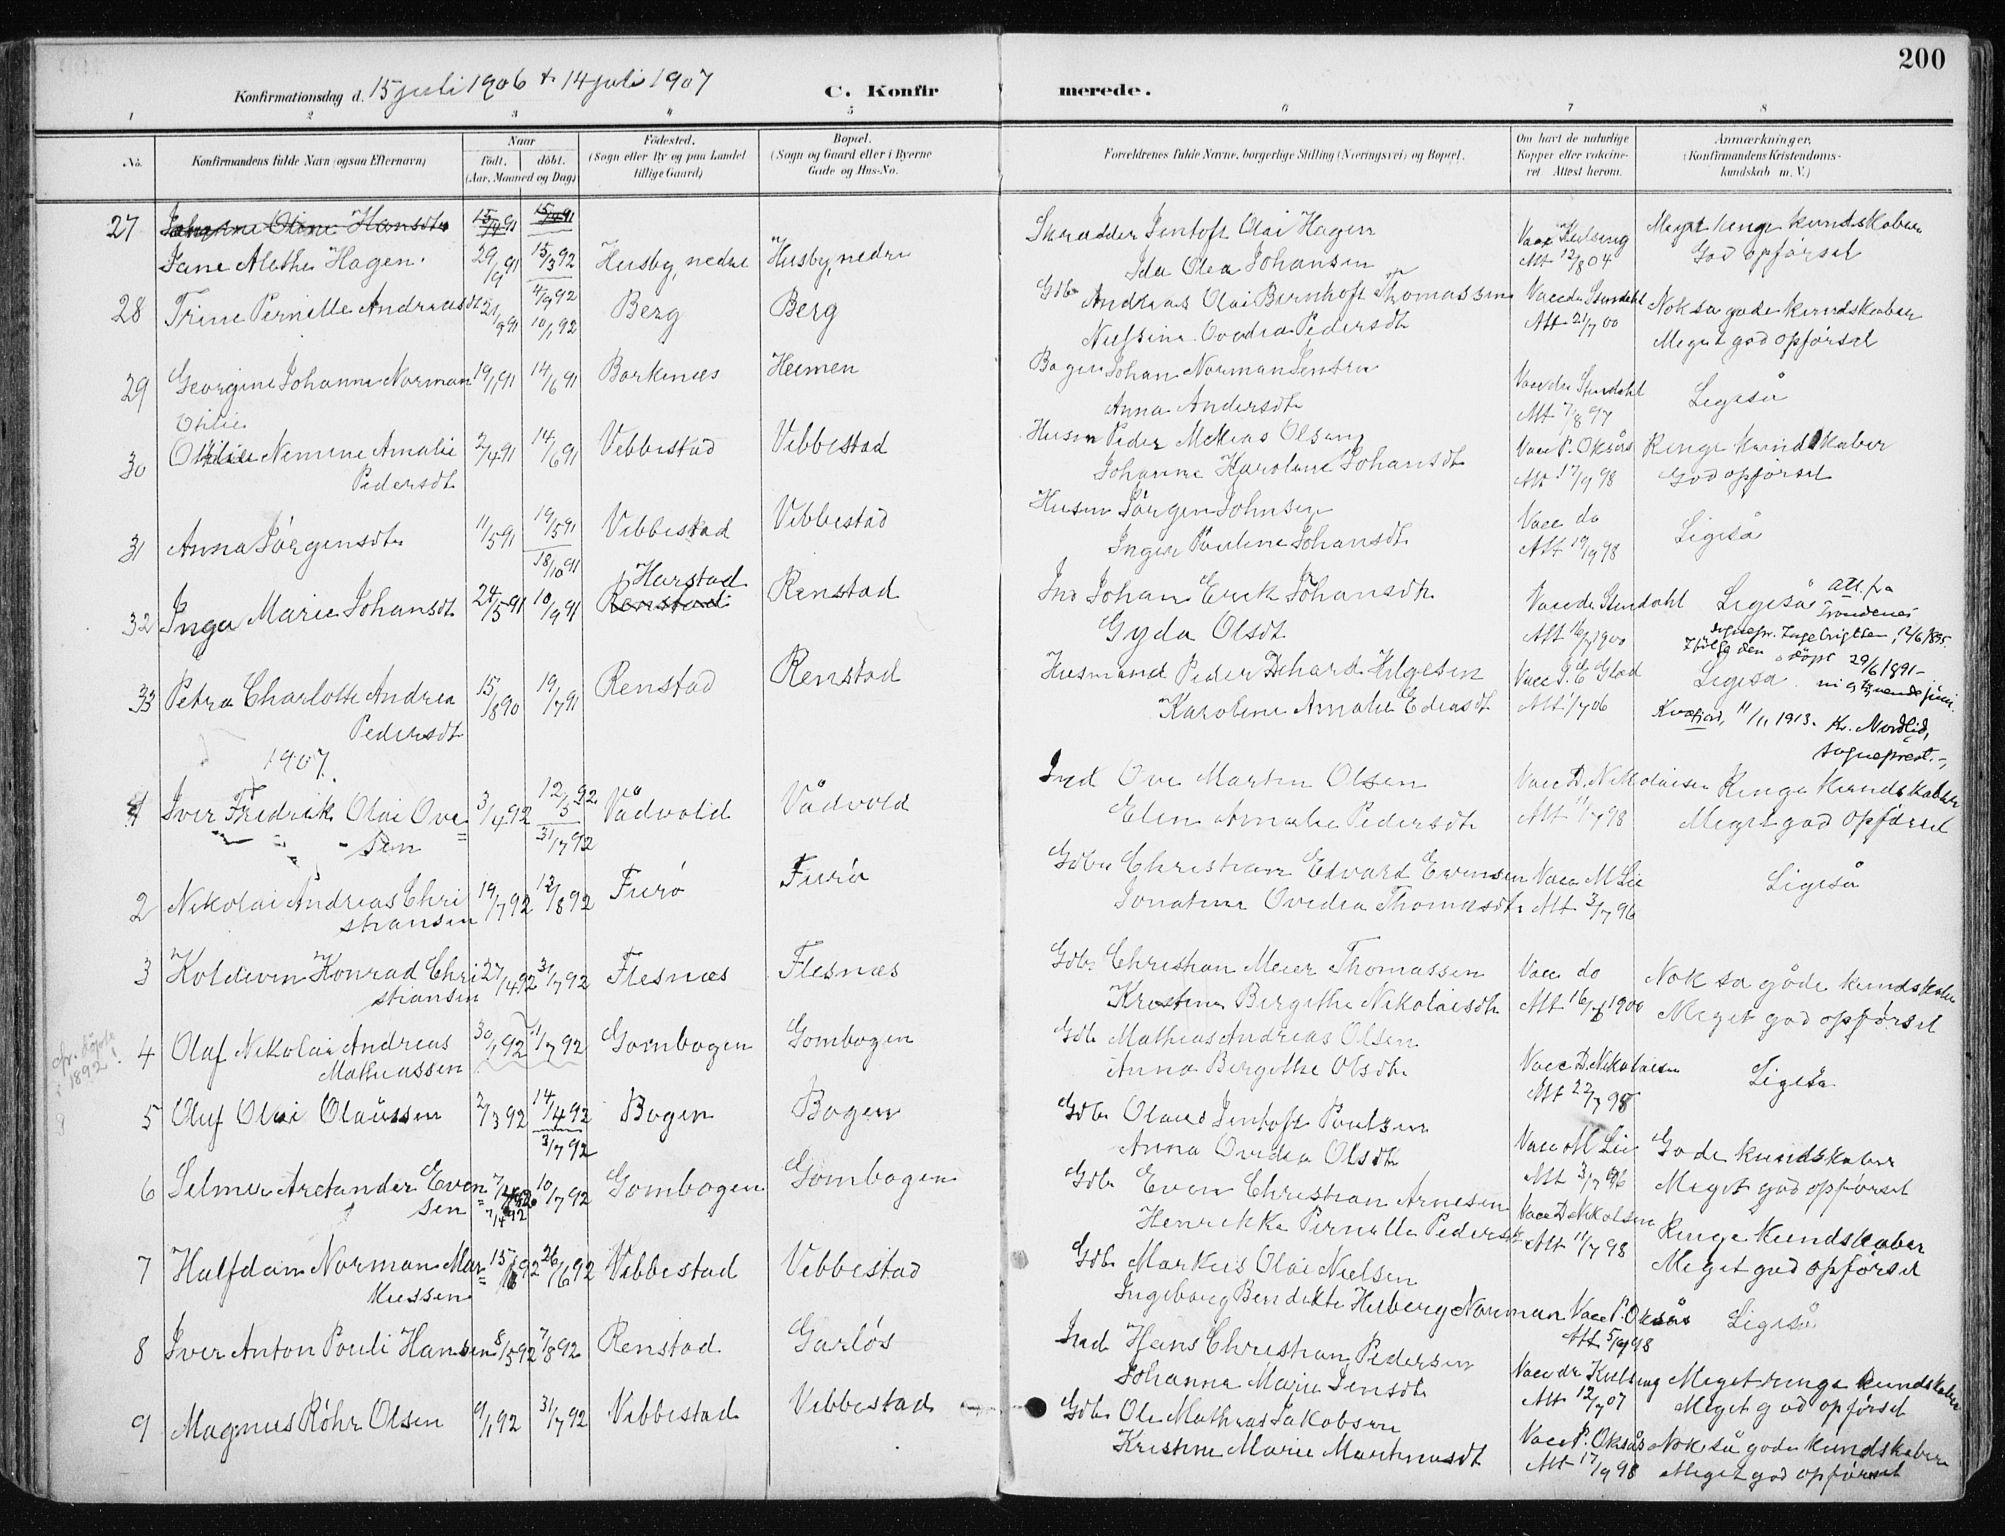 200
Konfirmationsdag d. 15 juli 1906 + 14 juli 1907 C. Konfirmerede.
1 2 3 4 5 6 7 8
No. Konfirmandens fulde Navn (ogsaa Efternavn) Naar Født. døbt. (Aar, Maaned og Dag) Fødested. (Sogn eller By og paa Landet tillige Gaard) Bopæl. (Sogn og Gaard eller i Byerne Gade og Hus-No. Forældrenes fulde Navne, borgerlige Stilling (Næringsvei) og Bopæl. Om havt de naturlige Kopper eller vakcineret Attest herom. Anmærkninger, (Konfirmandens Kristendomskundskab m. V.)
27 Johanne Oline Hansdtr 15/4 91 Skrædder Jentoft Olai Hagen Meget ringe kundskaber
Jane Alethe Hagen. 29/9 91 15/3 92 Husby, nedre Husby, nedre Ida Olea Johansen Att 12/8 04 God opførsel
28 Trine Pernille Andreasdt 21/9 91 4/9 92 10/1 92 Berg Berg Gdbr Andreas Olai Bernhoft Thomassen Vacc dr Stendahl Nok so gode kundskaber
Nielsine Ovedia Pedersdt Att 21/7 00 Meget god opførsel
29 Georgine Johanne Norman 19/1 91 14/6 91 Borkenæs Heimen Johan Norman Jentra Vacc dr Stendahl Ligeså
Anna Andersdtr Att 7/8 97
Otilie
30 Otilie Nimine Amalie 2/4 91 14/6 91 Vebbestad Vebbestad Husm Peder Mekias Olsen Vacc P. Oksås Ringe kundskaber
Pedersdt Johanne Karoline Johansdt Att 17/9 98 God opførsel
31 Anna Jørgensdtr 11/5 91 19/5 91 18/10 91 Vebbestad Vebbestad Husm Jørgen Johnsen Vacc do Ligeså
Inger Pauline Johansdt. Att 19/9 98
32 Inga Marie Johansdt 24/5 91 10/9 91 Harstad Renstad Renstad Ind Johan Erik Johansdtr Vacc dr Stendahl Ligeså att. fra Trondenes
Gyda Olsdt Att 16/7 1900 sognepr. 12/6 1895. ifølge den døpt 29/6 1891 -
33 Petra Charlotte Andrea 15/8 90 19/7 91 Renstad Renstad Husmand Peder Helgesen Vacc J. E Glad Ligeså ni og tyvende juni.
Pedersdt Karoline Amalie Att 1/7 06 Kvæfjord, 11/11 1913. Kr. Nordlid, sogneprest. -
1907.
1 Iver Fredrik Olai Ove= 3/4 92 12/5 92 31/7 92 Vådvold Vådvold Ind Ove Martin Olsen Vacc D. Nikolaisen Ringe kundskaber
sen Elen Amalie Pedersdt Att 11/7 98 Meget god opførsel
2 Nikolai Andreas Chri 19/7 92 12/8 92 Furø Furø Gdbr Christian Edvard Evensen Vacc M Lie Ligeså
stiansen Jonatine Ovedia Thomasdtr Att 3/7 96
3 Koldevin Konrad Chri 27/4 92 31/7 92 Flesnæs Flesnæs Gdbr Christian Meier Thomassen Vacc do Nok so gode kundskaber
stiansen Kristine Bergithe Nikolaisdtr Att 16/7 1900 Meget god opførsel
4 Olaf Nikolai Andreas 30/1 92 1/7 92 Gombogen Gombogen Gdb Mathias Andreas Olsen Vacc D. Nikolaisen Ligeså
Mathiassen Anna Bergithe Olsdtr Att 22/7 98
1892!
5 Oluf Olai Olaüssen 2/3 92 14/4 92 31/7 92 Bogen Bogen Gdbr Olaus Jentoft Poulsen Vacc M Lie Gode kundskaber
Anna Ovedia Olsdtr Att 3/7 96 Meget god opførsel
6 Selmer Arctander Even= 7/4 92 10/7 92 Gombogen Gombogen Gdbr Even Christian Arnesen Vacc D Nikolsen Ringe kundskaber
sen Henrikke Pernille Pedersdt Att 11/7 98 Meget god opførsel
7 Halfdan Norman Mar= 26/6 92 Vebbestad Vebbestad Gdbr Markus Olai Nielsen Vacc P. Oksås Ligeså
kussen Ingeborg Bendikte Norman Att 5/9 98
8 Iver Anton Pouli Hansen 8/5 92 7/8 92 Renstad Garløs Ind Hans Christian Pedersen Vacc dr Meget ringe kundskaber
Johanna Marie Jensdtr Att 12/7 07 Meget god opførsel
9 Magnus Røhr Olsen 9/1 92 31/7 92 Vebbestad Vebbestad Gdbr Ole Mathias Jakobsen Vacc P. Oksås Nok så gode kundskaber
Kristine Marie Martinusdt Att 17/9 98 Meget god opførsel